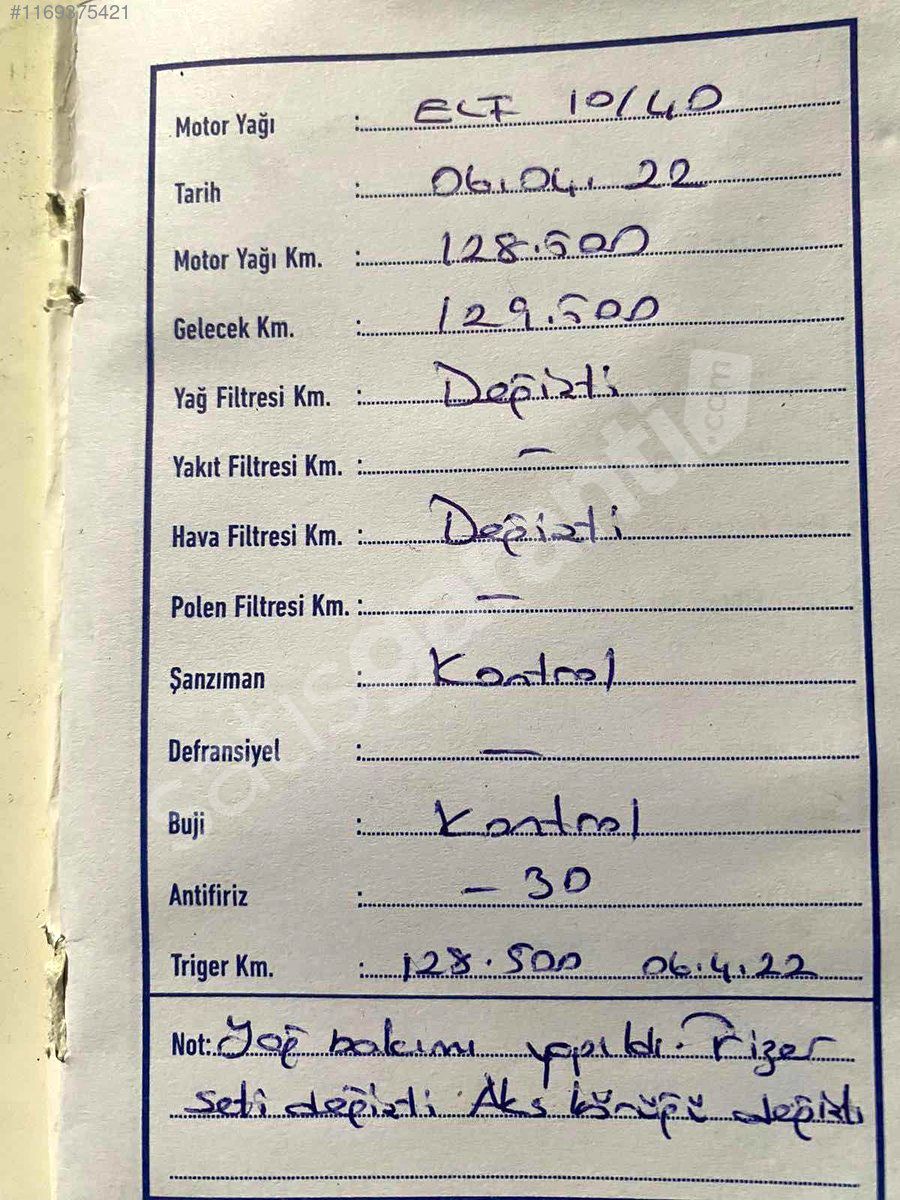 #1169375421
Motor Yağı : ELF 10/40
Tarih : 06.04.22
Motor Yağı Km. : 128.500
Gelecek Km. : 129.500
Yağ Filtresi Km. : Değişti
Yakıt Filtresi Km. : —
Hava Filtresi Km. : Değişti
Polen Filtresi Km. : —
Şanzıman : Kontrol
Defransiyel : —
Buji : Kontrol
Antifiriz : - 30
Triger Km. : 128.500 06.4.22
Not: Yağ bakımı yapıldı. Trizer
seti değişti Aks körüğü değişti
satışgaranti.com